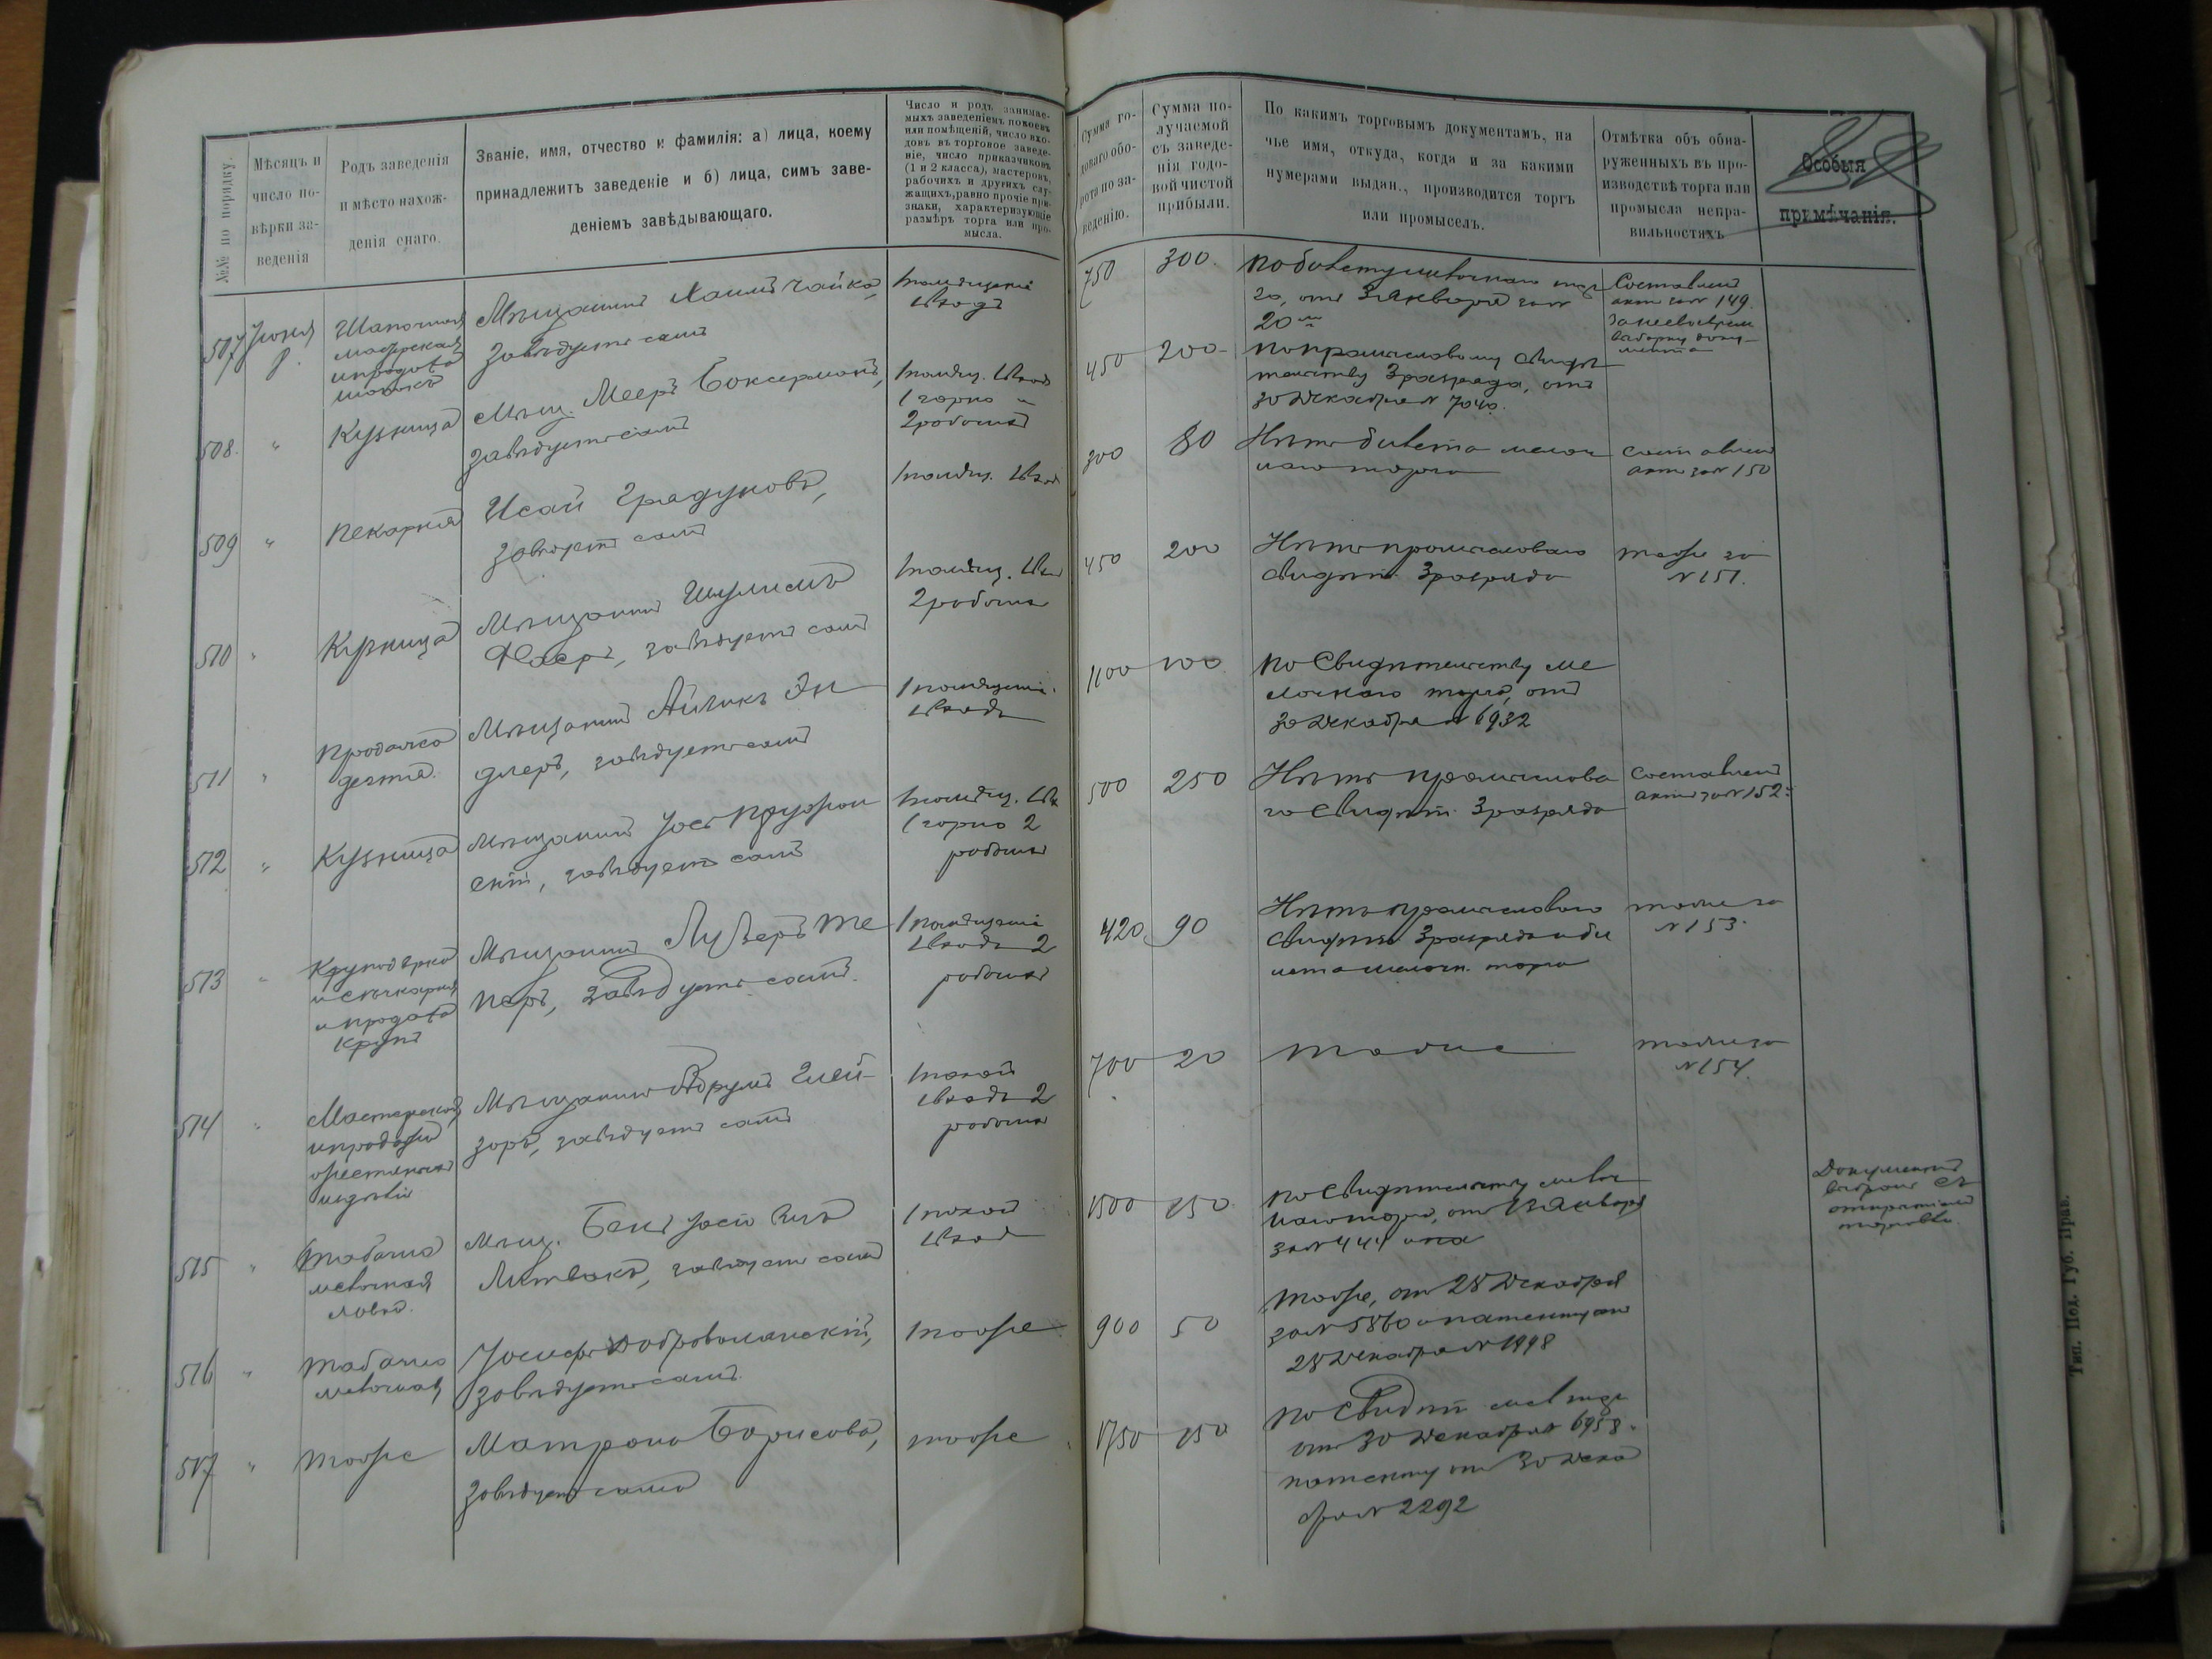 №№ по порядку.
Мѣсяцъ и
число по-
вѣрки за-
веденія
Родъ заведенія
и мѣсто нахож-
денія онаго.
Званіе, имя, отчество и фамилія: а) лица, коему
принадлежитъ заведеніе и б) лица, симъ заве-
деніемъ завѣдывающаго.
Число и родъ занимае-
мыхъ заведеніемъ покоевъ
или помѣщеній, число вхо-
довъ въ торговое заведе-
ніе, число приказчиковъ
(1 и 2 класса), мастеровъ,
рабочихъ и другихъ слу-
жащихъ, равно прочіе при-
знаки, характеризующіе
размѣръ торга или про-
мысла.
Сумма го-
доваго обо-
рота по за-
веденію.
Сумма по-
лучаемой
съ заведе-
нія годо-
вой чистой
прибыли.
По какимъ торговымъ документамъ, на
чье имя, откуда, когда и за какими
нумерами выдан., производится торгъ
или промыселъ.
Отмѣтка объ обна-
руженныхъ въ про-
изводствѣ торга или
промысла непра-
вильностяхъ
Особыя
примѣчанія.
507 Іюня
8.
Шапочная
мастерская
и продажа
шапокъ
Мѣщанинъ Хаимъ Чайка,
завѣдуетъ самъ
1 помѣщеніе
1 входъ
750
300.
20, отъ 3 Января за №
20
Составленъ
актъ за № 149.
508. "
Кузница
Мѣщ. Мееръ Боксерманъ,
завѣдуетъ самъ
1 помѣщ. 1 входъ
1 горно и
2 рабочихъ
450
200
По промысловому свидѣ
тельству 3 разряда, отъ
30 Декабря № 7040.
509 "
Пекарня
Исай Градуновъ,
завѣдуетъ самъ
1 помѣщ. 1 входъ
300
80
Нѣтъ билета мелоч
наго торга
Составленъ
актъ за № 150
510 "
Кузница
Мѣщанинъ Шулимъ
завѣдуетъ самъ
1 помѣщ. 1 вх
2 рабочихъ
450
200
Нѣтъ промысловаго
свидѣт. 3 разряда
тоже за
№ 151.
511 "
Продажа
дегтя.
Мѣщанинъ Айзикъ Эн
длеръ, завѣдуетъ самъ
1 помѣщеніе
1 входъ
1100
100
По свидѣтельству ме
лочнаго торга, отъ
30 Декабря № 6932
512 "
Кузница
Мѣщанинъ Іось
скій, завѣдуетъ самъ
1 помѣщ. 1 вх
1 горно 2
рабочихъ
500
250
Нѣтъ промыслова
го свидѣт. 3 разряда
Составленъ
актъ за № 152
513 "
Круподерка
и продажа
крупъ
Мѣщанинъ
перъ, завѣдуетъ самъ.
1 помѣщеніе
1 входъ 2
рабочихъ
420
90
Нѣтъ промысловаго
свидѣт. 3 разряда и би
лета мелочн. торга
тоже за
№ 153.
514 "
Мастерская
и продажа
жестяныхъ
издѣлій
Мѣщанинъ Абрумъ Глей-
зеръ, завѣдуетъ самъ
1 покой
1 входъ 2
рабочихъ
700
20
тоже
тоже за
№ 154.
515 "
Табачно
мелочная
лавка.
Мѣщ.
Литвакъ, завѣдуетъ самъ
1 покой
1 входъ
1500
150
По свидѣтельству мелоч
наго торга, отъ 13 Января
за № 444
Документъ
выбранъ съ
открытіемъ
торговли.
516 "
Табачно
мелочная
Іосифъ Добровольскій,
завѣдуетъ самъ.
тоже
900
50
тоже, отъ 28 Декабря
за № 5860 и патенту отъ
28 Декабря № 1998
517 "
тоже
Матрена Борисова,
завѣдуетъ сама
тоже
1750
150
По свидѣт. мел торг
отъ 30 Декабря № 6958.
патенту отъ 30 Дека
бря № 2292
Тип. Под. Губ. Прав.